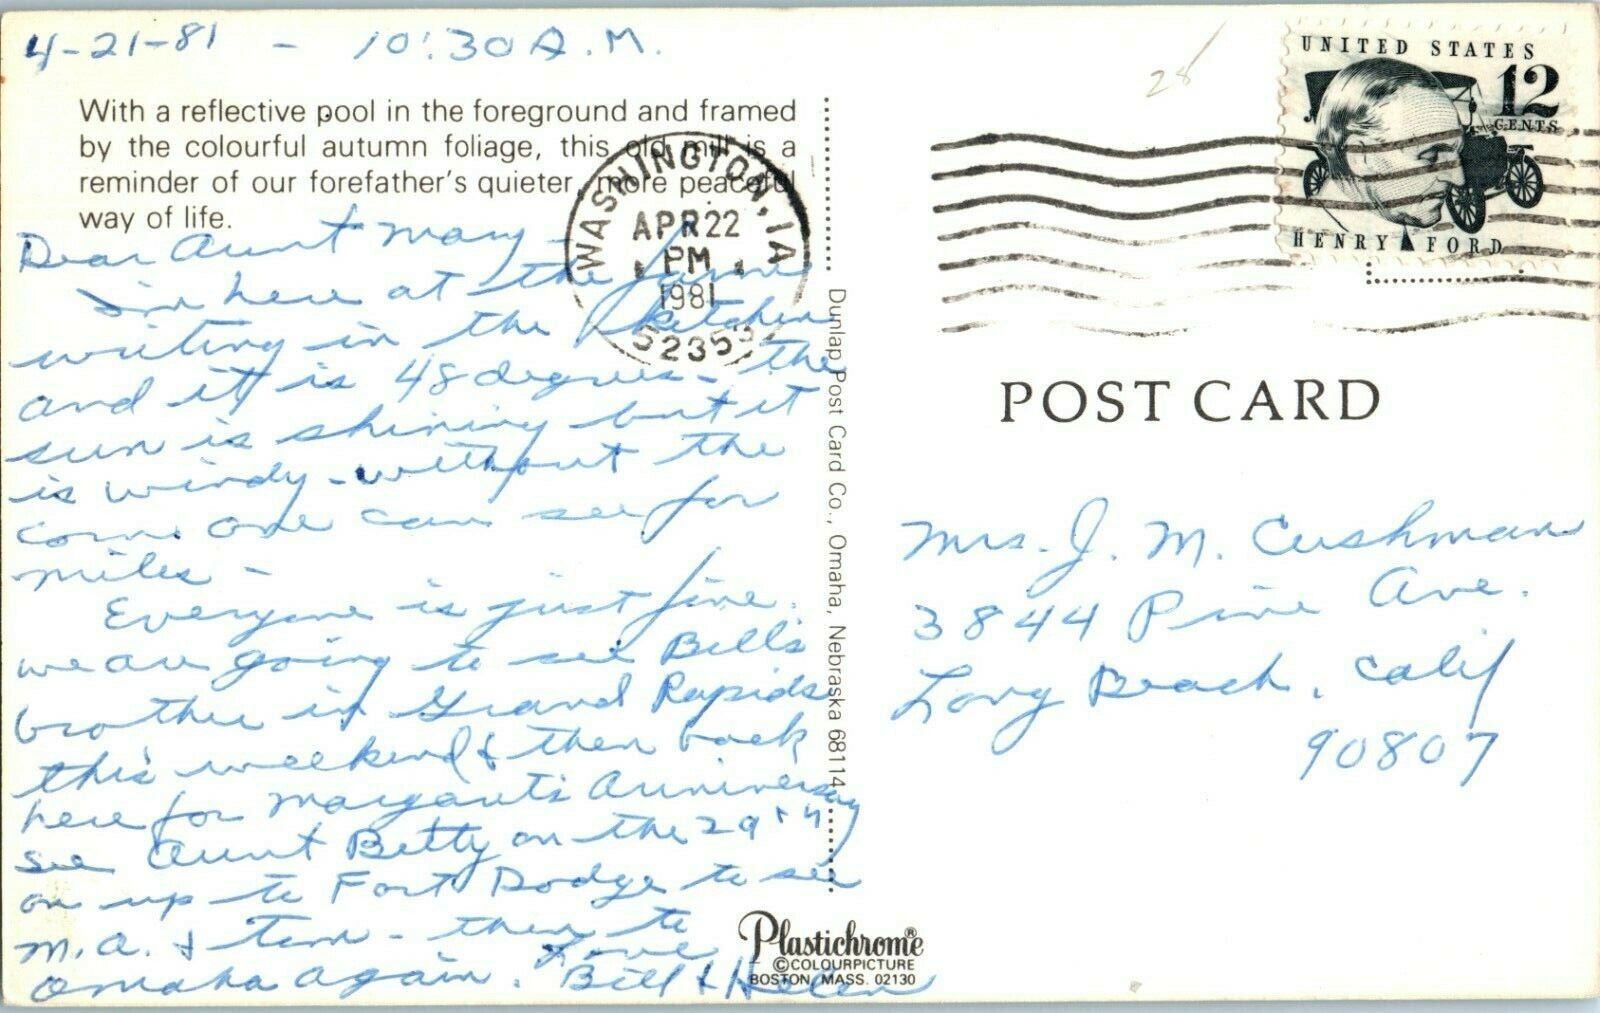 4-21-81 - 10:30 A.M.
With a reflective pool in the foreground and framed
by the colourful autumn foliage, this old mill is a
reminder of our forefather's quieter, more peaceful
way of life.
Dear Aunt Mary -
I'm here at the farm
writing in the kitchen
and it is 48 degrees - the
sun is shining but it
is windy - without the
corn one can see for
miles -
Everyone is just fine.
we are going to see Bill's
brother in Grand Rapids
this weekend & then back
here for Margaret's Anniversary
see Aunt Betty on the 29th
on up to Fort Dodge to see
M.A. & - then to
Omaha again. Love
Bill & Helen
WASHINGTON, IA
APR 22
PM
1981
52353
Dunlap Post Card Co., Omaha, Nebraska 68114
Plastichrome®
©COLOURPICTURE
BOSTON, MASS. 02130
28
UNITED STATES
12
CENTS
HENRY FORD
POST CARD
Mrs. J. M. Cushman
3844 Pine Ave.
Long Beach, Calif
90807